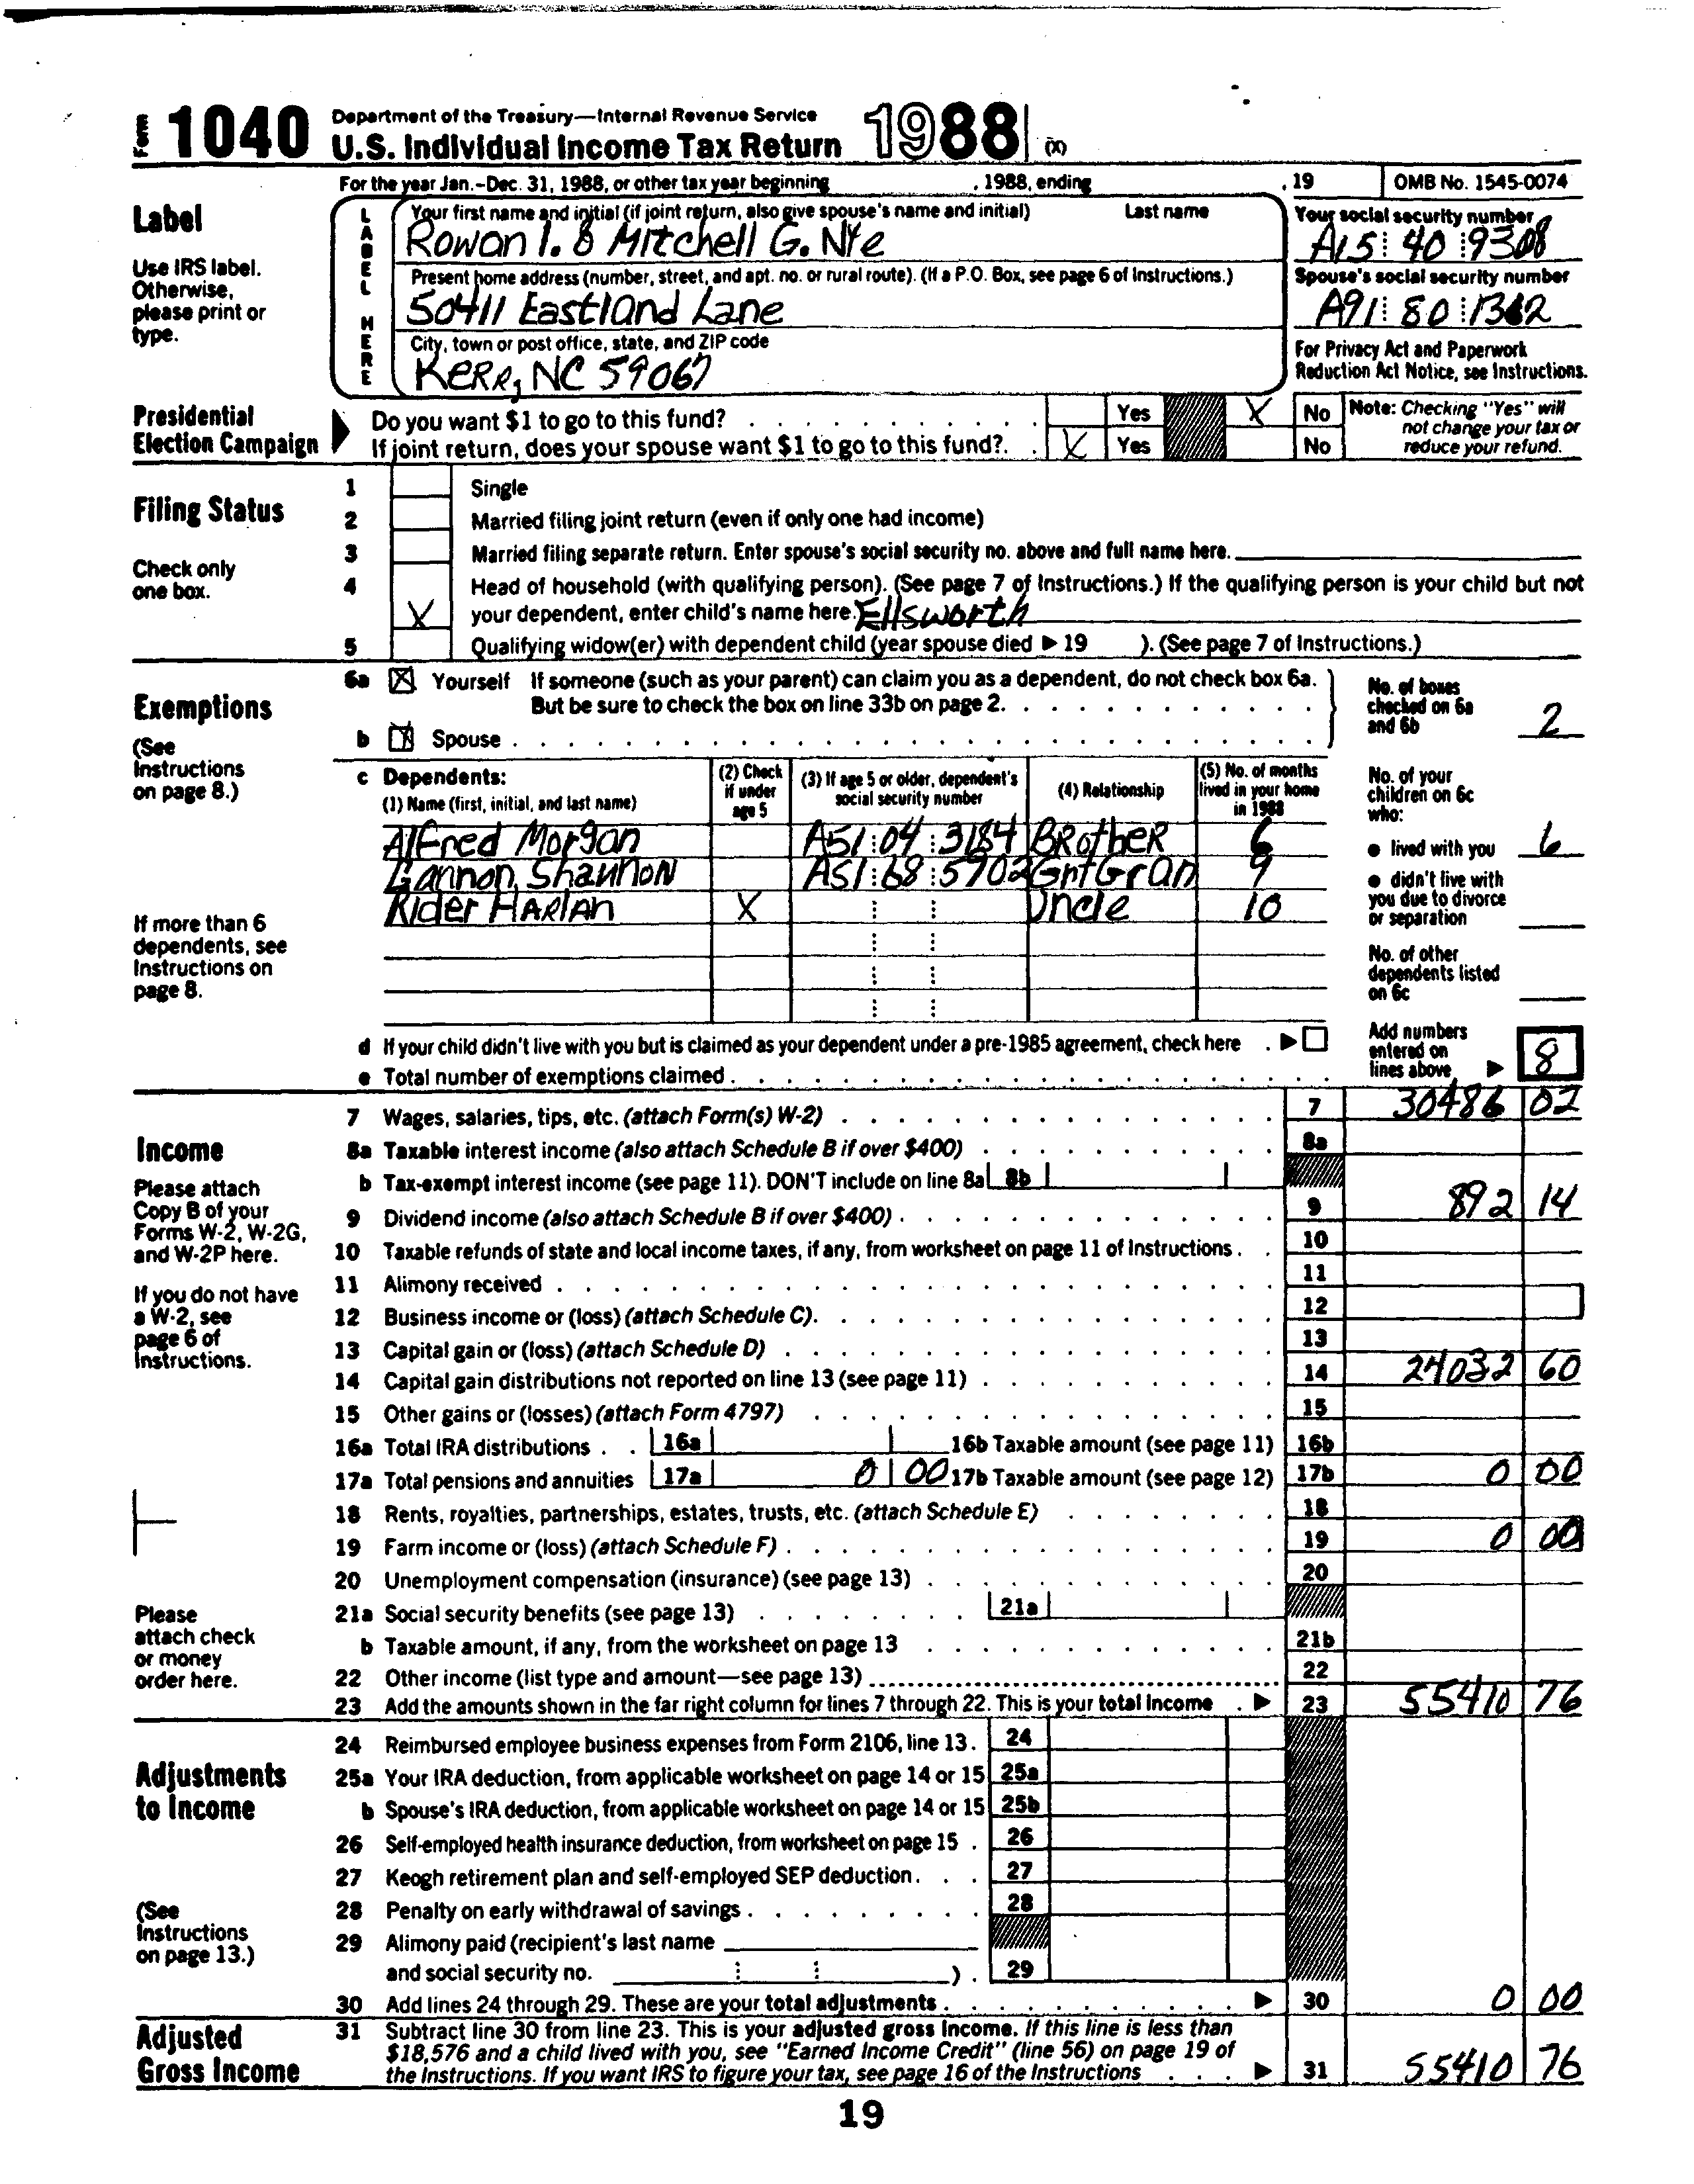 Form 1040 Department of the Treasury—Internal Revenue Service
U.S. Individual Income Tax Return 1988 (X)
For the year Jan.-Dec. 31, 1988, or other tax year beginning , 1988, ending , 19 OMB No. 1545-0074
Label
Use IRS label. Otherwise, please print or type.
LABEL HERE
Your first name and initial (if joint return, also give spouse's name and initial) Last name
Rowan I. & Mitchell G. Nye
Your social security number
A15 40 9308
Present home address (number, street, and apt. no. or rural route). (If a P.O. Box, see page 6 of Instructions.)
50411 Eastland Lane
Spouse's social security number
A91 80 1362
City, town or post office, state, and ZIP code
Kerr, NC 59067
For Privacy Act and Paperwork Reduction Act Notice, see Instructions.
Presidential Election Campaign
Do you want $1 to go to this fund? Yes X No
If joint return, does your spouse want $1 to go to this fund? X Yes No
Note: Checking "Yes" will not change your tax or reduce your refund.
Filing Status
Check only one box.
1 Single
2 Married filing joint return (even if only one had income)
3 Married filing separate return. Enter spouse's social security no. above and full name here.
4 Head of household (with qualifying person). (See page 7 of Instructions.) If the qualifying person is your child but not
X your dependent, enter child's name here. Ellsworth
5 Qualifying widow(er) with dependent child (year spouse died ▶ 19 ). (See page 7 of Instructions.)
Exemptions
(See Instructions on page 8.)
6a X Yourself If someone (such as your parent) can claim you as a dependent, do not check box 6a.
But be sure to check the box on line 33b on page 2.
b X Spouse
No. of boxes checked on 6a and 6b 2
c Dependents:
(1) Name (first, initial, and last name) (2) Check if under age 5 (3) If age 5 or older, dependent's social security number (4) Relationship (5) No. of months lived in your home in 1988
Alfred Morgan A51 04 3184 Brother 6
Gannon, Shannon A51 68 5702 GntGran 9
Rider Harlan X Uncle 10
No. of your children on 6c who:
● lived with you 6
● didn't live with you due to divorce or separation
No. of other dependents listed on 6c
If more than 6 dependents, see Instructions on page 8.
d If your child didn't live with you but is claimed as your dependent under a pre-1985 agreement, check here ▶
e Total number of exemptions claimed
Add numbers entered on lines above ▶ 8
Income
Please attach Copy B of your Forms W-2, W-2G, and W-2P here.
If you do not have a W-2, see page 6 of Instructions.
Please attach check or money order here.
7 Wages, salaries, tips, etc. (attach Form(s) W-2) 7 30486 02
8a Taxable interest income (also attach Schedule B if over $400) 8a
b Tax-exempt interest income (see page 11). DON'T include on line 8a 8b
9 Dividend income (also attach Schedule B if over $400) 9 892 14
10 Taxable refunds of state and local income taxes, if any, from worksheet on page 11 of Instructions 10
11 Alimony received 11
12 Business income or (loss) (attach Schedule C) 12
13 Capital gain or (loss) (attach Schedule D) 13
14 Capital gain distributions not reported on line 13 (see page 11) 14 24032 60
15 Other gains or (losses) (attach Form 4797) 15
16a Total IRA distributions 16a 16b Taxable amount (see page 11) 16b
17a Total pensions and annuities 17a 0 00 17b Taxable amount (see page 12) 17b 0 00
18 Rents, royalties, partnerships, estates, trusts, etc. (attach Schedule E) 18
19 Farm income or (loss) (attach Schedule F) 19 0 00
20 Unemployment compensation (insurance) (see page 13) 20
21a Social security benefits (see page 13) 21a
b Taxable amount, if any, from the worksheet on page 13 21b
22 Other income (list type and amount—see page 13) 22
23 Add the amounts shown in the far right column for lines 7 through 22. This is your total income ▶ 23 55410 76
Adjustments to Income
(See Instructions on page 13.)
24 Reimbursed employee business expenses from Form 2106, line 13. 24
25a Your IRA deduction, from applicable worksheet on page 14 or 15 25a
b Spouse's IRA deduction, from applicable worksheet on page 14 or 15 25b
26 Self-employed health insurance deduction, from worksheet on page 15 26
27 Keogh retirement plan and self-employed SEP deduction 27
28 Penalty on early withdrawal of savings 28
29 Alimony paid (recipient's last name
and social security no. ) 29
30 Add lines 24 through 29. These are your total adjustments ▶ 30 0 00
Adjusted Gross Income
31 Subtract line 30 from line 23. This is your adjusted gross income. If this line is less than
$18,576 and a child lived with you, see "Earned Income Credit" (line 56) on page 19 of
the Instructions. If you want IRS to figure your tax, see page 16 of the Instructions ▶ 31 55410 76
19